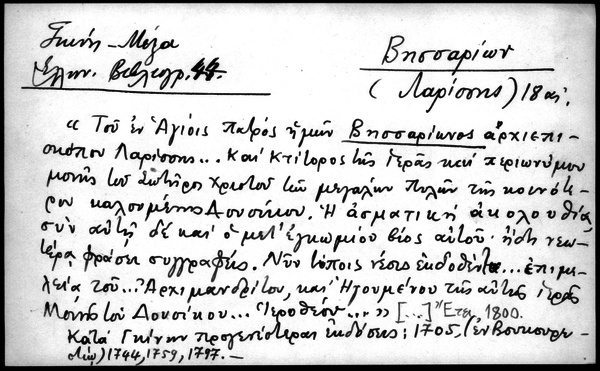 Γκίνης - Μέξα
Ἑλλην. Βιβλιογρ. 44.
Βησσαρίων
(Λαρίσσης) 18 αἰ.
« Τοῦ ἐν Ἁγίοις πατρός ἡμῶν Βησσαρίωνος ἀρχιεπι-
σκόπου Λαρίσσης... Καί Κτίτορος τῆς ἱερᾶς καί περιωνύμου
μονῆς τοῦ Σωτῆρος Χριστοῦ τῶν μεγάλων πυλῶν τῆς κοινότε-
ρον καλουμένης Δουσίκου. Ἡ ἀσματική ἀκολουθία
σύν αὐτῇ δέ καί ὁ μετ' ἐγκωμίου βίος αὐτοῦ· ἤδη νεω-
τέρᾳ φράσει συγγραφείς. Νῦν τύποις νέοις ἐκδοθέντα... ἐπιμε-
λείᾳ τοῦ... Ἀρχιμανδρίτου, καί Ἡγουμένου τῆς αὐτῆς ἱερᾶς
Μονῆς τοῦ Δουσίκου... Ἱεροθέου... » [...] Ἔτει, 1800.
Κατά Γκίνην προγενέστεραι ἐκδόσεις: 1705, (ἐν Βουκουρε-
στίῳ) 1744, 1759, 1797. —